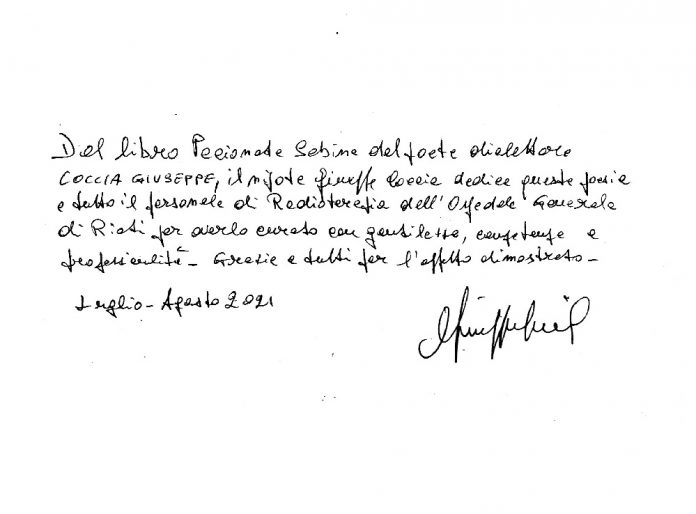 Dal libro Pecionate Sabine del poeta dialettale
COCCIA GIUSEPPE, il nipote Giuseppe Coccia dedica questa poesia
a tutto il personale di Radioterapia dell'Ospedale Generale
di Rieti per averlo curato con gentilezza, competenza e
professionalità - Grazie a tutti per l'affetto dimostrato -
Luglio - Agosto 2021